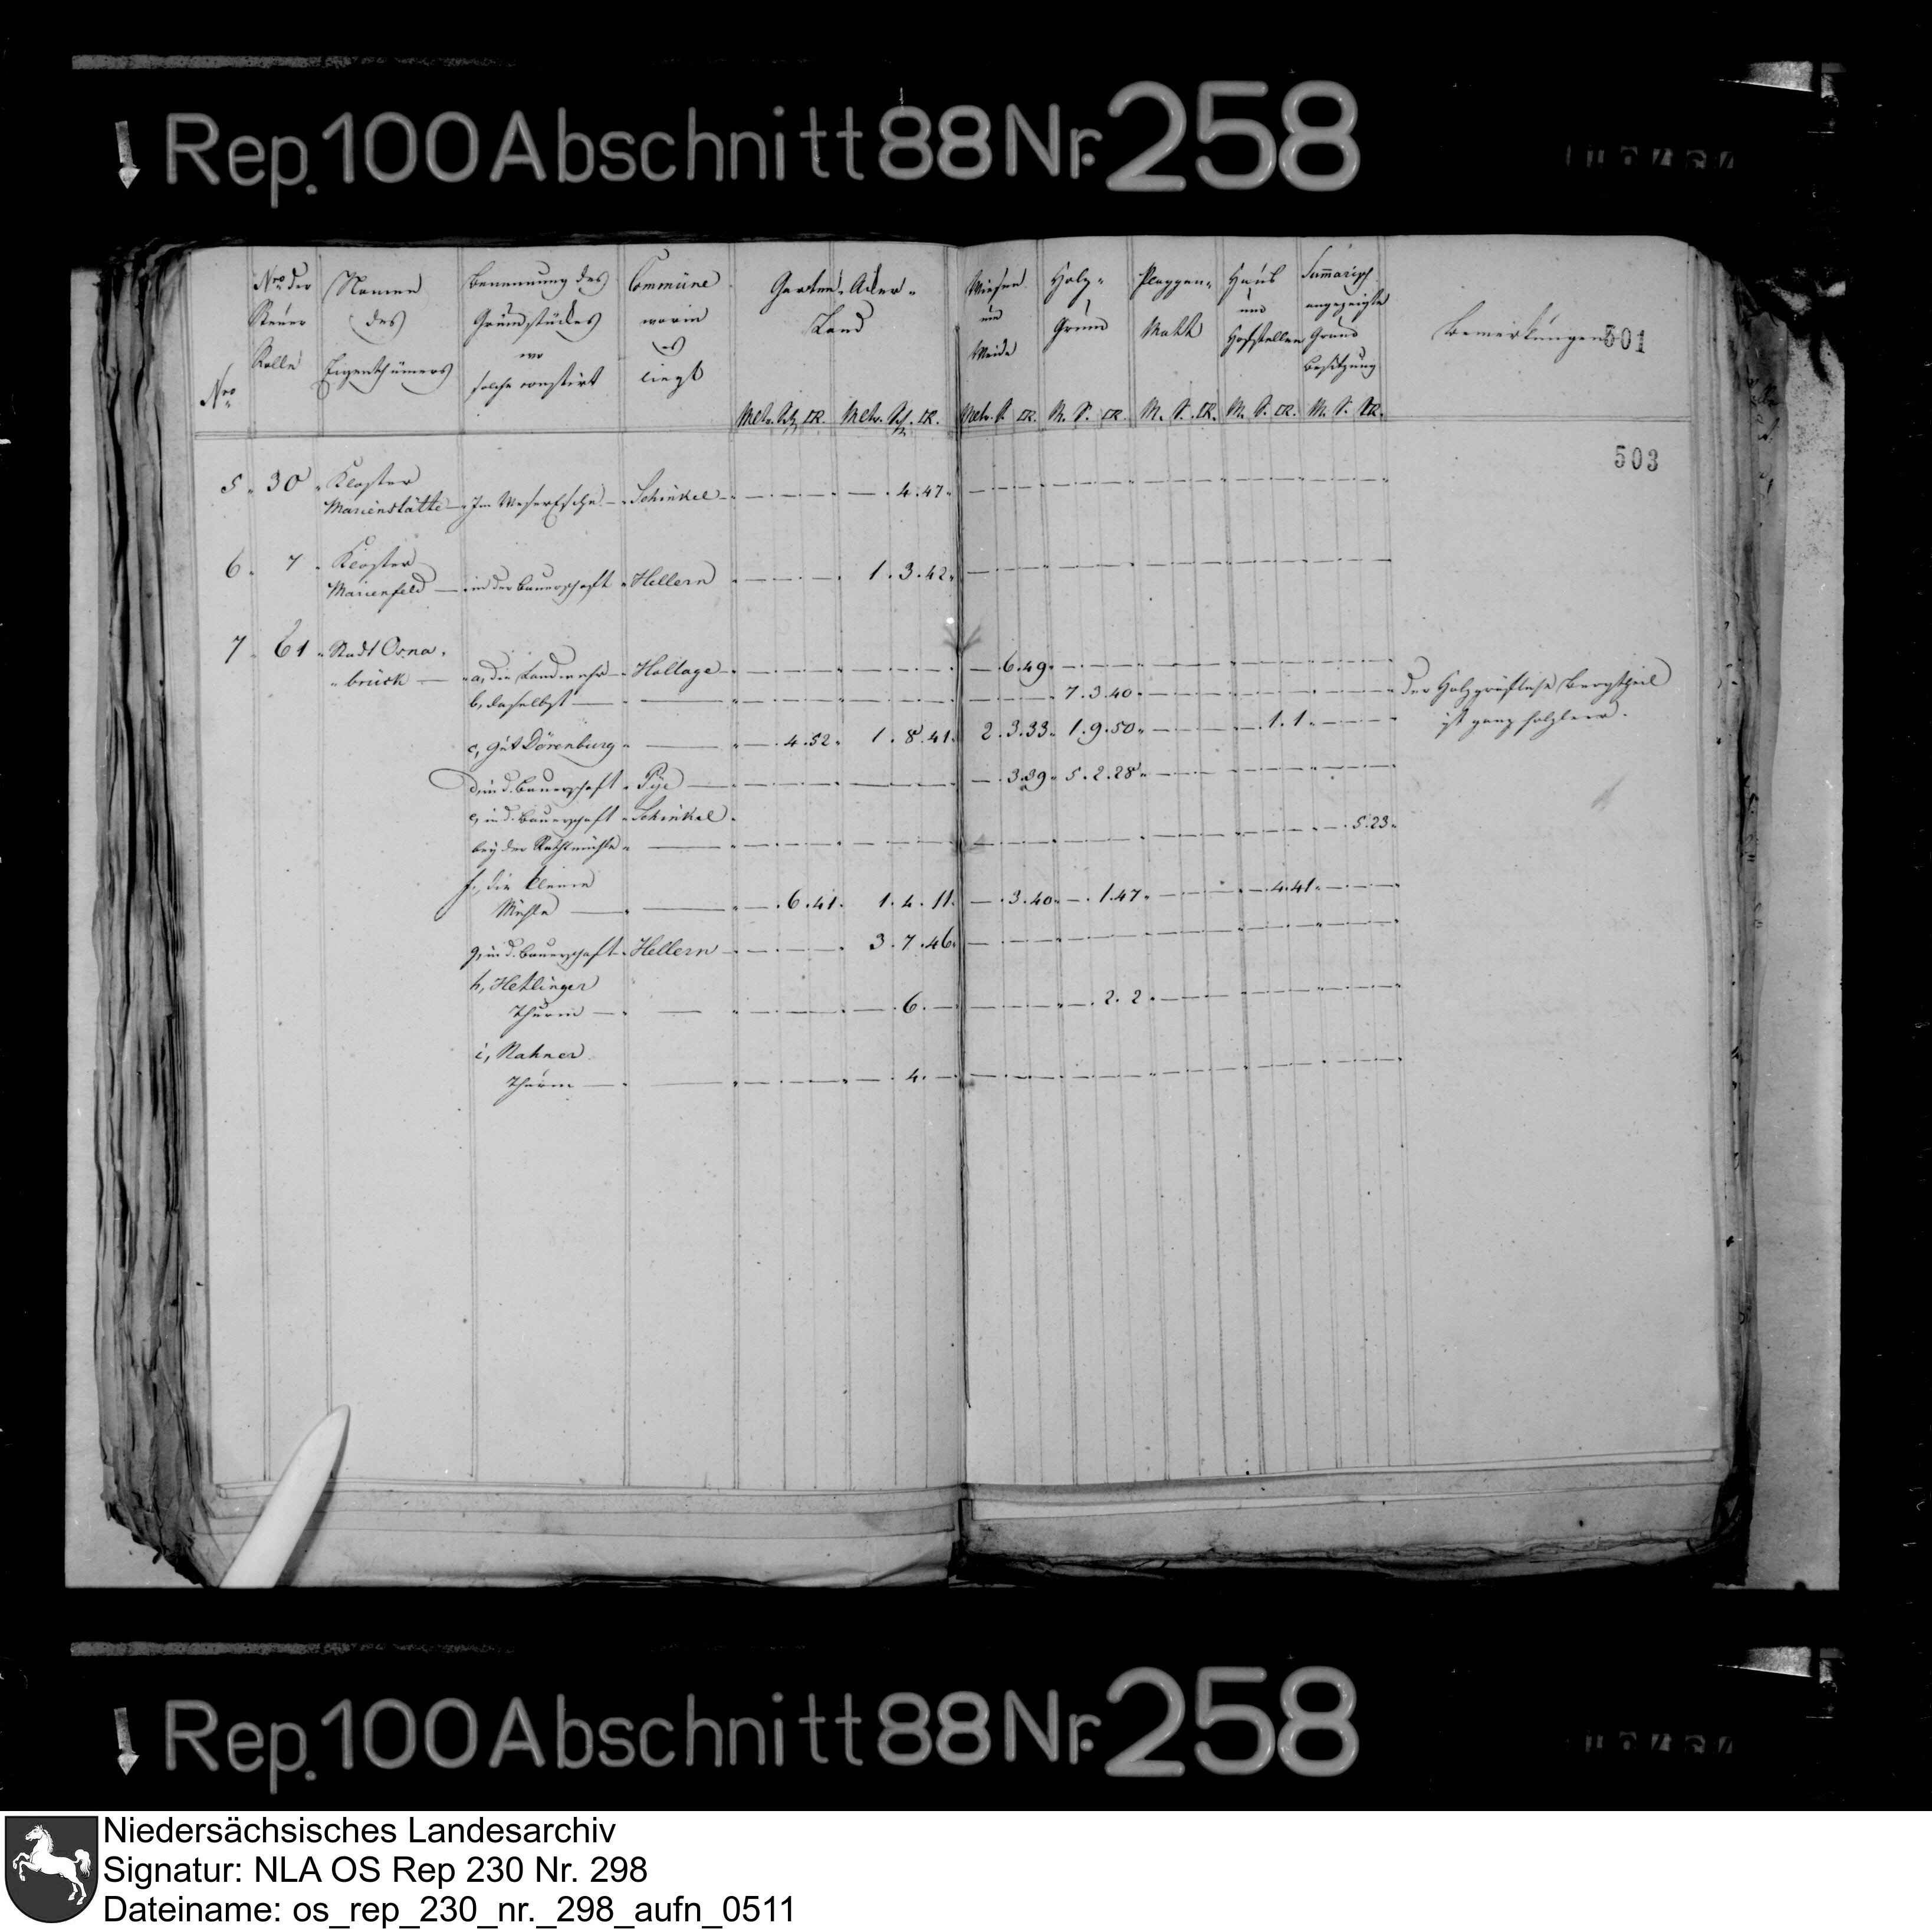 Rep. 100 Abschnitt 88 Nr. 258
Nro
Nro der Steuer Rolle
Namen des Eigenthümers
Benennung des Grundstückes wo solche constirt
Commüne worin es liegt
Garten- Acker- Land
Wiesen und Weide
Holz- Grund
Plaggen- Matt
Haus und Hofstellen
Summarisch angezeigte Grund Besitzung
Bemerkungen
501
503
5. 30. Kloster
Marienstätte — Im Weser Esche — Schinkel — 4. 47.
6. 7. Kloster
Marienfeld — in der Bauerschaft Hellern — 1. 3. 42.
7. 61. Stadt Osna-
brück — a, die Landwehr — Hollage — 6. 49.
b, daselbst — 7. 3. 40. der Holzgräfliche Bergtheil
ist ganz holzleer.
c, Gut Dörenburg — 4. 52. 1. 8. 41. 2. 3. 33. 1. 9. 50. 1. 1.
d, in d. Bauerschaft Pye — 3. 39. 5. 2. 28.
e, in d. Bauerschaft Schinkel
bey der — 5. 23.
f, die kleine
Mühle — 6. 41. 1. 4. 11. 3. 40. 1. 47. 4. 41.
g, in d. Bauerschaft Hellern — 3. 7. 46.
h, Hetlinger
Thurm — 6. — 2. 2.
i, Nahner
Thurm — 4. —
Rep. 100 Abschnitt 88 Nr. 258
Niedersächsisches Landesarchiv
Signatur: NLA OS Rep 230 Nr. 298
Dateiname: os_rep_230_nr._298_aufn_0511